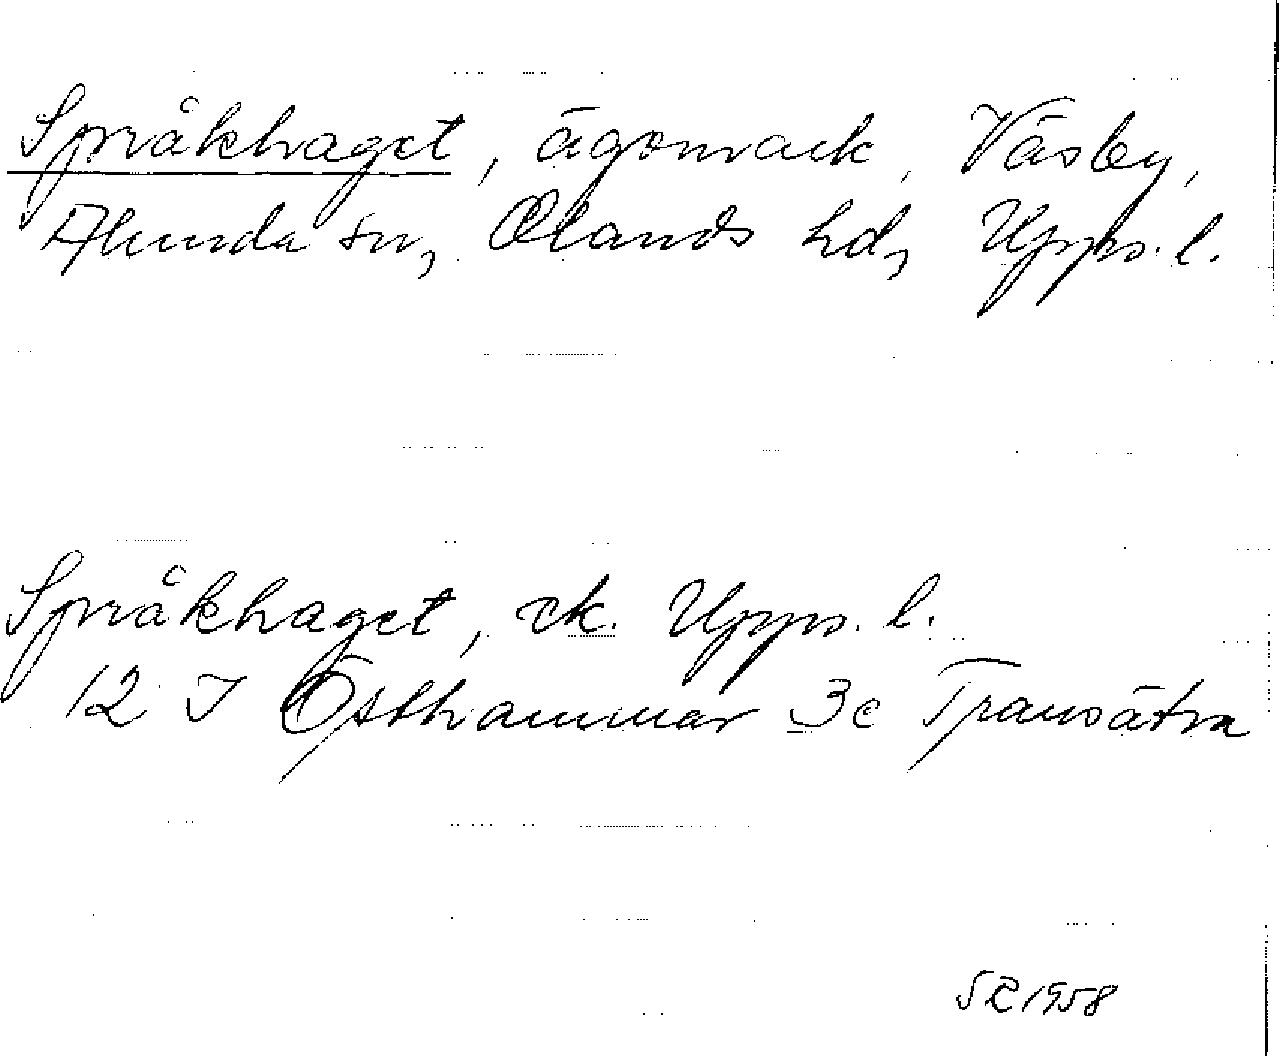 Språkhaget, ägomark, Väsby,
Alunda sn, Olands hd, Upps. l.
Språkhaget, ek. Upps. l.
12 I Östhammar 3c Transätra
SR 1958